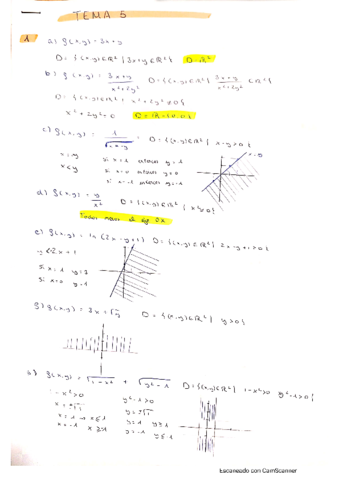 TEMA 5
1 a) f(x,y) = 3x+y
D = {(x,y)∈ℝ² | 3x+y∈ℝ²} D=ℝ²
b) f(x,y) = 3x+y / x²+2y² D = {(x,y)∈ℝ² | 3x+y / x²+2y² ∈ℝ²}
D = {(x,y)∈ℝ² | x²+2y² ≠ 0}
x²+2y² = 0
c) f(x,y) = 1 / √x-y D = {(x,y)∈ℝ² | x-y>0}
si x=1 entonces y=1
si x=0 entonces y=0
si x=-1 entonces y=-1
d) f(x,y) = y / x² D = {(x,y)∈ℝ² | x²≠0}
Todos menos el eje OX
e) f(x,y) = ln(2x-y+1) D = {(x,y)∈ℝ² | 2x-y+1>0}
y<2x+1
si x=1 y=3
si x=0 y=1
g) f(x,y) = 3x+√y D = {(x,y)∈ℝ² | y>0}
h) f(x,y) = √1-x² + √y²-1 D = {(x,y)∈ℝ² | 1-x²>0 y²-1>0}
1-x²>0 y²-1>0
Escaneado con CamScanner